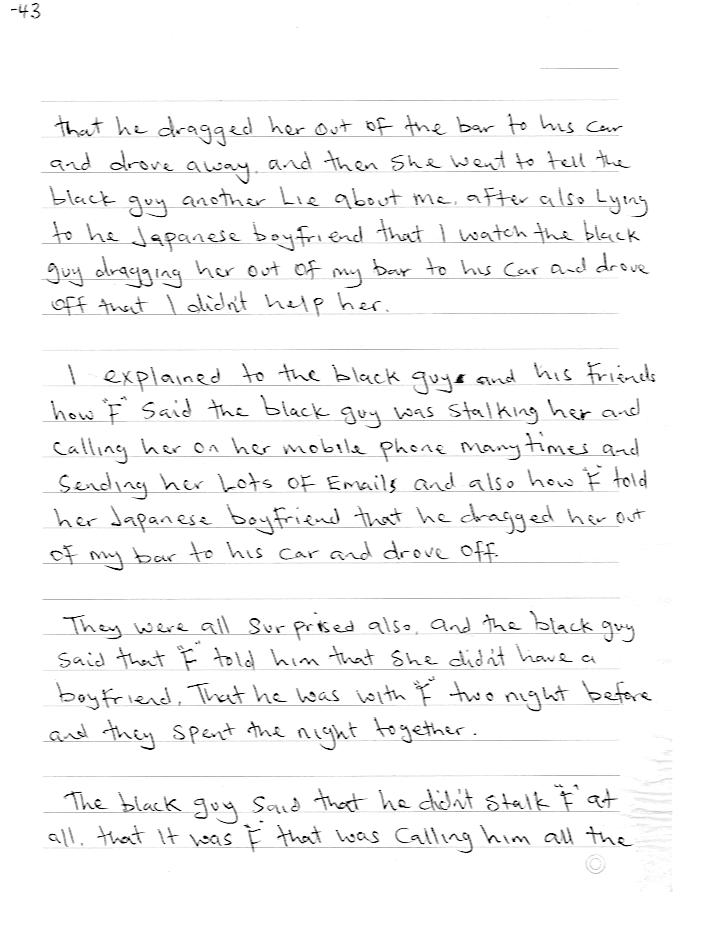 -43
that he dragged her out of the bar to his car
and drove away. and then She went to tell the
black guy another Lie about me. after also Lying
to he Japanese boyfriend that I watch the black
guy dragging her out of my bar to his car and drove
off that I didn't help her.
I explained to the black guy and his Friends
how "F" Said the black guy was Stalking her and
calling her on her mobile phone many times and
Sending her Lots OF Emails and also how "F" told
her Japanese boyfriend that he dragged her out
of my bar to his car and drove off.
They were all Surprised also. and the black guy
Said that "F" told him that She didn't have a
boyfriend. That he was with "F" two night before
and they Spent the night together.
The black guy Said that he didn't Stalk "F" at
all. that It was "F" that was Calling him all the